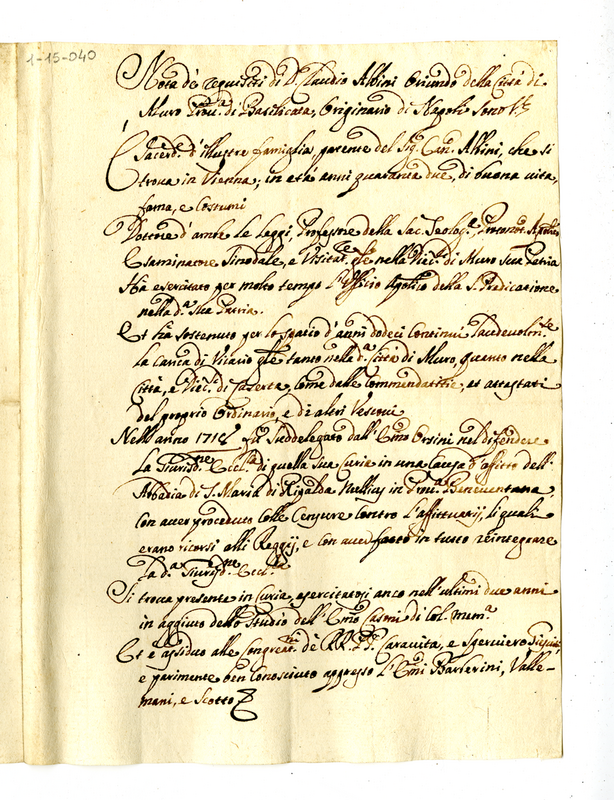 1-15-040
Nota dè requisiti di D. Claudio Albini Oriundo della Città di
Muro Prov.a di Basilicata, Originario di Napoli sono
Sacerd.e d'illustre famiglia parente del Sig.r Can. Albini, che si
trova in Vienna, in età anni quaranta due, di buona vita,
fama, e Costumi
Dottore d'ambe le Leggi, Professore della Sac. Teolog.a, Protonot. Aplico
Esaminatore Sinodale, e Visitat.re gñle nella Dioc. di Muro Sua Patria
Hà esercitato per molto tempo l'Officio Aplico della S. Predicazione
nella d.a Sua Patria.
Et hà sostenuto per lo spazio d'anni dodeci Continui laudevolm.te
la Carica di Vicario gñle tanto nella d.a Città di Muro, quanto nella
Città, e Dioc. di Caserta, Come dalle Commendatitie, et attestati
del proprio Ordinario, e di altri Vescovi
Nell'anno fù Suddelegato dall'Emo Orsini nel difendere
la Giurisd.ne Eccl.ca di quella Sua Curia in una Causa d'affitto dell'
Abbazia di S. Maria di Nullius in Prov.a Beneventana,
Con aver proceduto Colle Censure Contro l'affittuarij, li quali
erano ricorsi alli Reggij, e Con aver fatto in tutto reintegrare
la d.a Giurisd.ne Eccl.ca
Si trova presente in Curia, esercitatosi anco nell'ultimi due anni
in aggiuto dello Studio dell'Emo Casoni di Col. mem.a
Et è assiduo alle Congreat.ni dè RR. PP. Caravita, e
e parimente ben Conosciuto appresso l'Emi Barberini, Valle-
mani, e Scotto